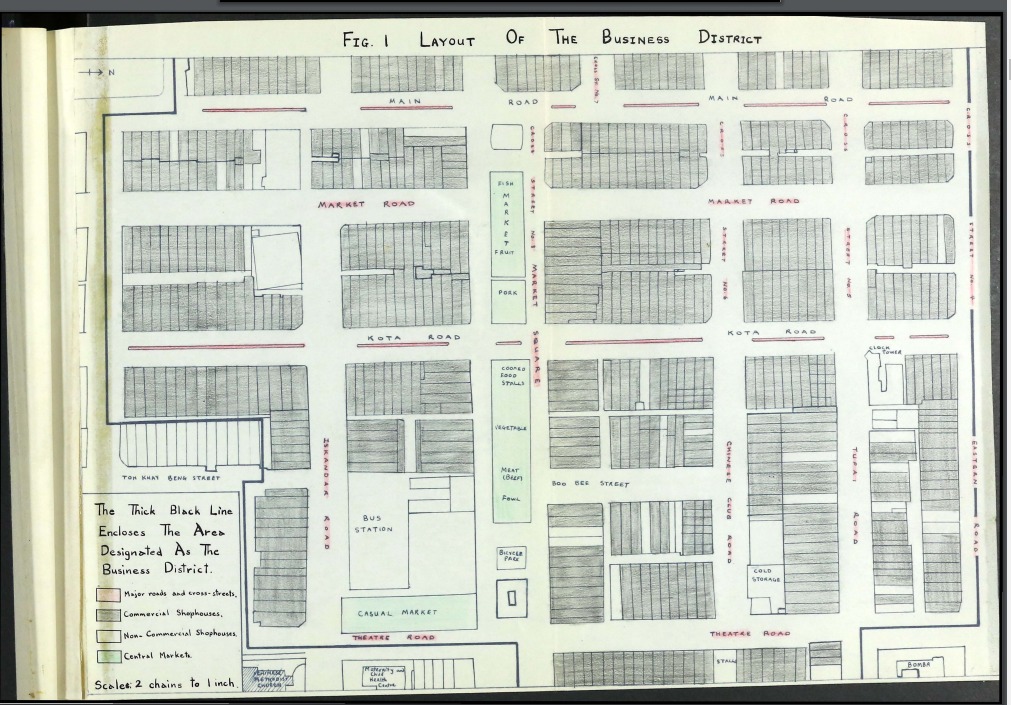 FIG. 1 LAYOUT OF THE BUSINESS DISTRICT
N
MAIN ROAD
MAIN ROAD
CROSS
CROSS
CROSS
CROSS
FISH
MARKET
FRUIT
STREET No. 7
MARKET SQUARE
MARKET ROAD
MARKET ROAD
STREET
STREET
STREET
PORK
KOTA ROAD
KOTA ROAD
CLOCK
TOWER
COOKED
FOOD
STALLS
VEGETABLE
MEAT
(BEEF)
FOWL
TOH KHAY BENG STREET
ISKANDAR ROAD
BOO BEE STREET
CHINESE CLUB ROAD
TUPAI ROAD
EASTERN ROAD
BUS
STATION
BICYCLE
PARK
COLD
STORAGE
CASUAL MARKET
THEATRE ROAD
THEATRE ROAD
STALL
BOMBA
Maternity and
Child
Health
Centre
The Thick Black Line
Encloses The Area
Designated As The
Business District.
Major roads and cross-streets.
Commercial Shophouses.
Non-Commercial Shophouses.
Central Markets.
Scale: 2 chains to 1 inch.